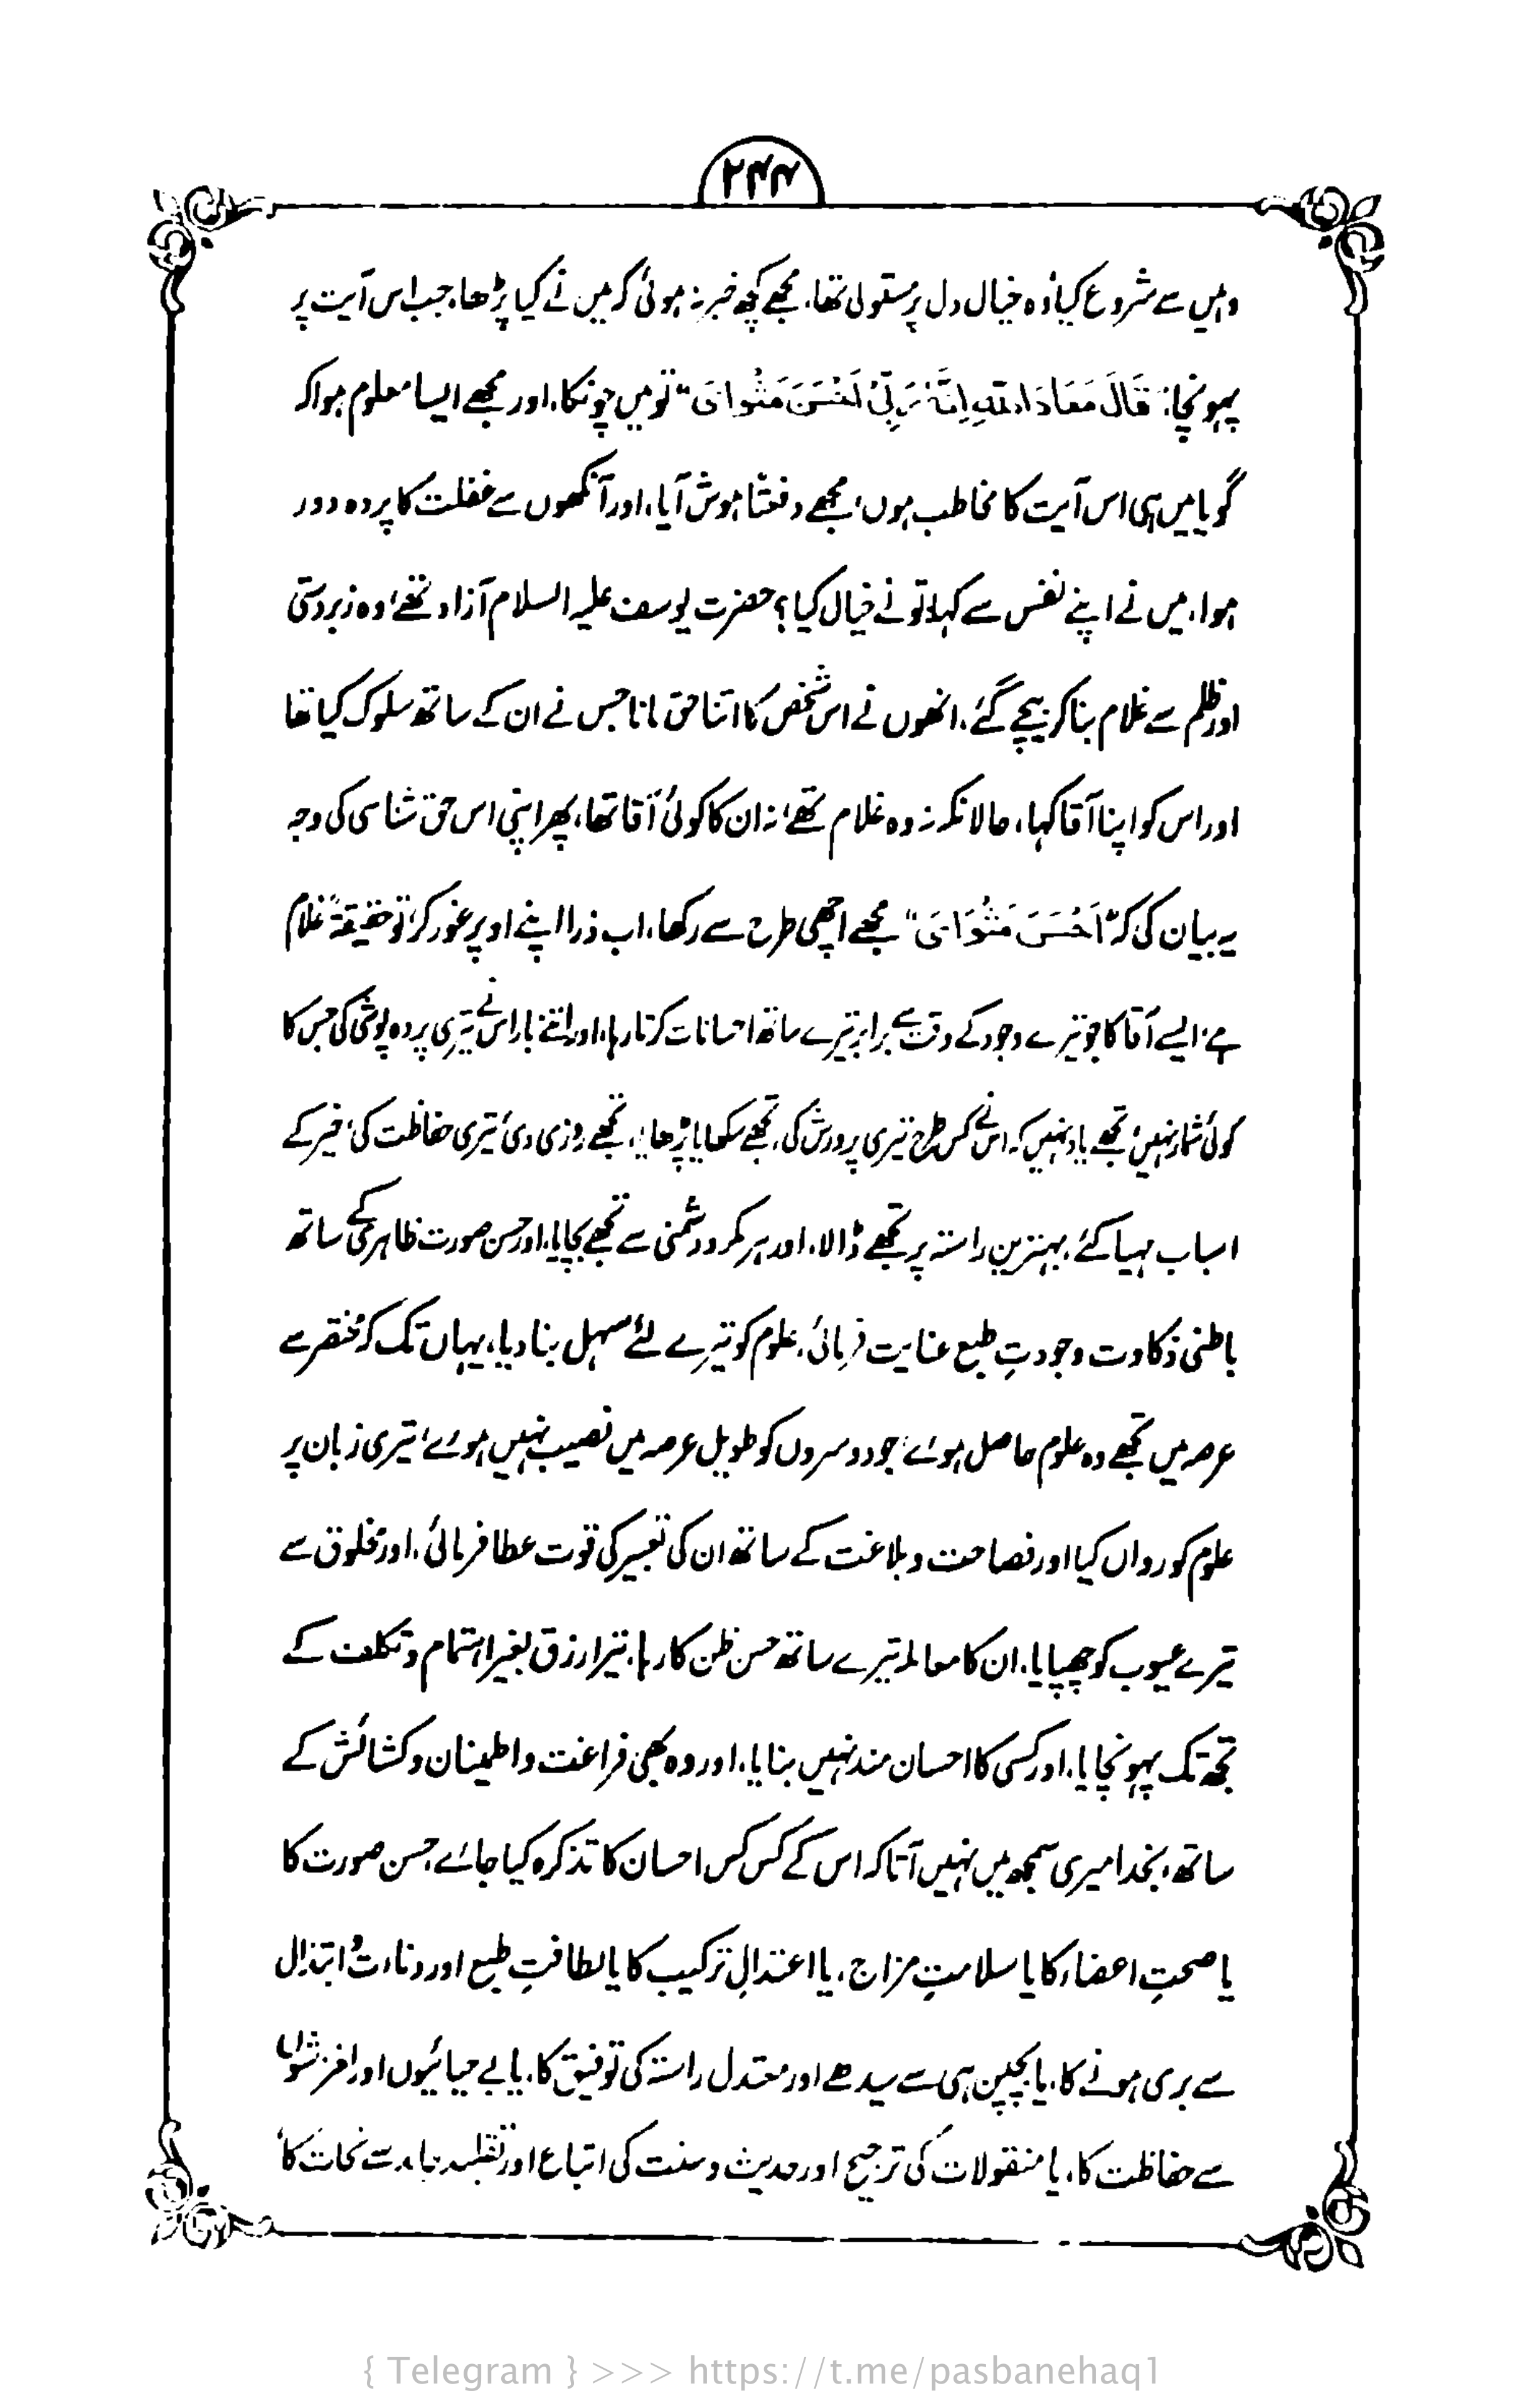 ۲۴۴
وہیں سے شروع کیا، وہ خیال دل پر مستولی تھا، مجھے کچھ خبر نہ ہوئی کہ میں نے کیا پڑھا، جب اس آیت پر
پہونچا: "قَالَ مَعَاذَ اللّٰهِ اِنَّهٗ رَبِّیْ اَحْسَنَ مَثْوَایَ" تو میں چونکا، اور مجھے ایسا معلوم ہوا کہ
گویا میں ہی اس آیت کا مخاطب ہوں، مجھے دفعتًا ہوش آیا، اور آنکھوں سے غفلت کا پردہ دور
ہوا، میں نے اپنے نفس سے کہا، تو نے خیال کیا؟ حضرت یوسف علیہ السلام آزاد تھے، وہ زبردستی
اور ظلم سے غلام بنا کر بیچے گئے، انھوں نے اس شخص کا اتنا حق مانا جس نے ان کے ساتھ سلوک کیا تھا
اور اس کو اپنا آقا کہا، حالانکہ نہ وہ غلام تھے، نہ ان کا کوئی آقا تھا، پھر اپنی اس حق شناسی کی وجہ
یہ بیان کی کہ "اَحْسَنَ مَثْوَایَ" مجھے اچھی طرح سے رکھا، اب ذرا اپنے اوپر غور کر، تو حقیقۃً غلام
ہے، ایسے آقا کا جو تیرے وجود کے وقت سے برابر تیرے ساتھ احسانات کرتا رہا، اور اتنے بار اس نے تیری پردہ پوشی کی جس کا
کوئی شمار نہیں، تجھے یاد نہیں کہ اس نے کس طرح تیری پرورش کی، تجھے سکھایا پڑھایا، تجھے روزی دی، تیری حفاظت کی، خیر کے
اسباب مہیا کئے، بہترین راستہ پر تجھے ڈالا، اور ہر مکر و دشمنی سے تجھے بچایا، اور حسن صورت ظاہری کے ساتھ
باطنی ذکاوت وجودتِ طبع عنایت فرمائی، علوم کو تیرے لئے سہل بنا دیا، یہاں تک کہ مختصر سے
عرصہ میں تجھے وہ علوم حاصل ہوئے، جو دوسروں کو طویل عرصہ میں نصیب نہیں ہوئے، تیری زبان پر
علوم کو رواں کیا اور فصاحت و بلاغت کے ساتھ ان کی تعبیر کی قوت عطا فرمائی، اور مخلوق سے
تیرے عیوب کو چھپایا، ان کا معاملہ تیرے ساتھ حسن ظن کا رہا، تیرا رزق بغیر اہتمام و تکلف کے
تجھ تک پہونچایا، اور کسی کا احسان مند نہیں بنایا، اور وہ بھی فراغت و اطمینان و کشائش کے
ساتھ، بخدا میری سمجھ میں نہیں آتا کہ اس کے کس کس احسان کا تذکرہ کیا جائے، حسن صورت کا
یا صحتِ اعضاء کا یا سلامتِ مزاج، یا اعتدالِ ترکیب کا یا لطافتِ طبع اور دناءت و ابتذال
سے بری ہونے کا، یا بچپن ہی سے سیدھے اور معتدل راستہ کی توفیق کا، یا بے حیائیوں اور لغزشوں
سے حفاظت کا، یا منقولات کی ترجیح اور حدیث و سنت کی اتباع اور تقلید جامد سے نجات کا،
{ Telegram } >>> https://t.me/pasbanehaq1